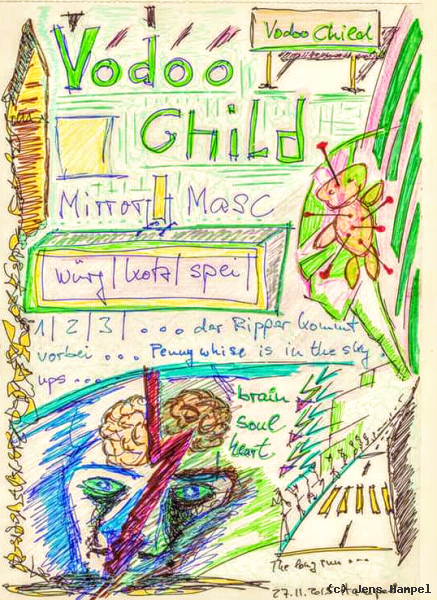 Vodoo
Vodoo Child
Child
Mirror Masc
würg | kotz | spei |
1 | 2 | 3 | ... der Ripper kommt
vorbei ... Pennywhise is in the sky.
ups ...
brain
soul
heart
The long run ...
27.11.2015
(c) Jens Hampel